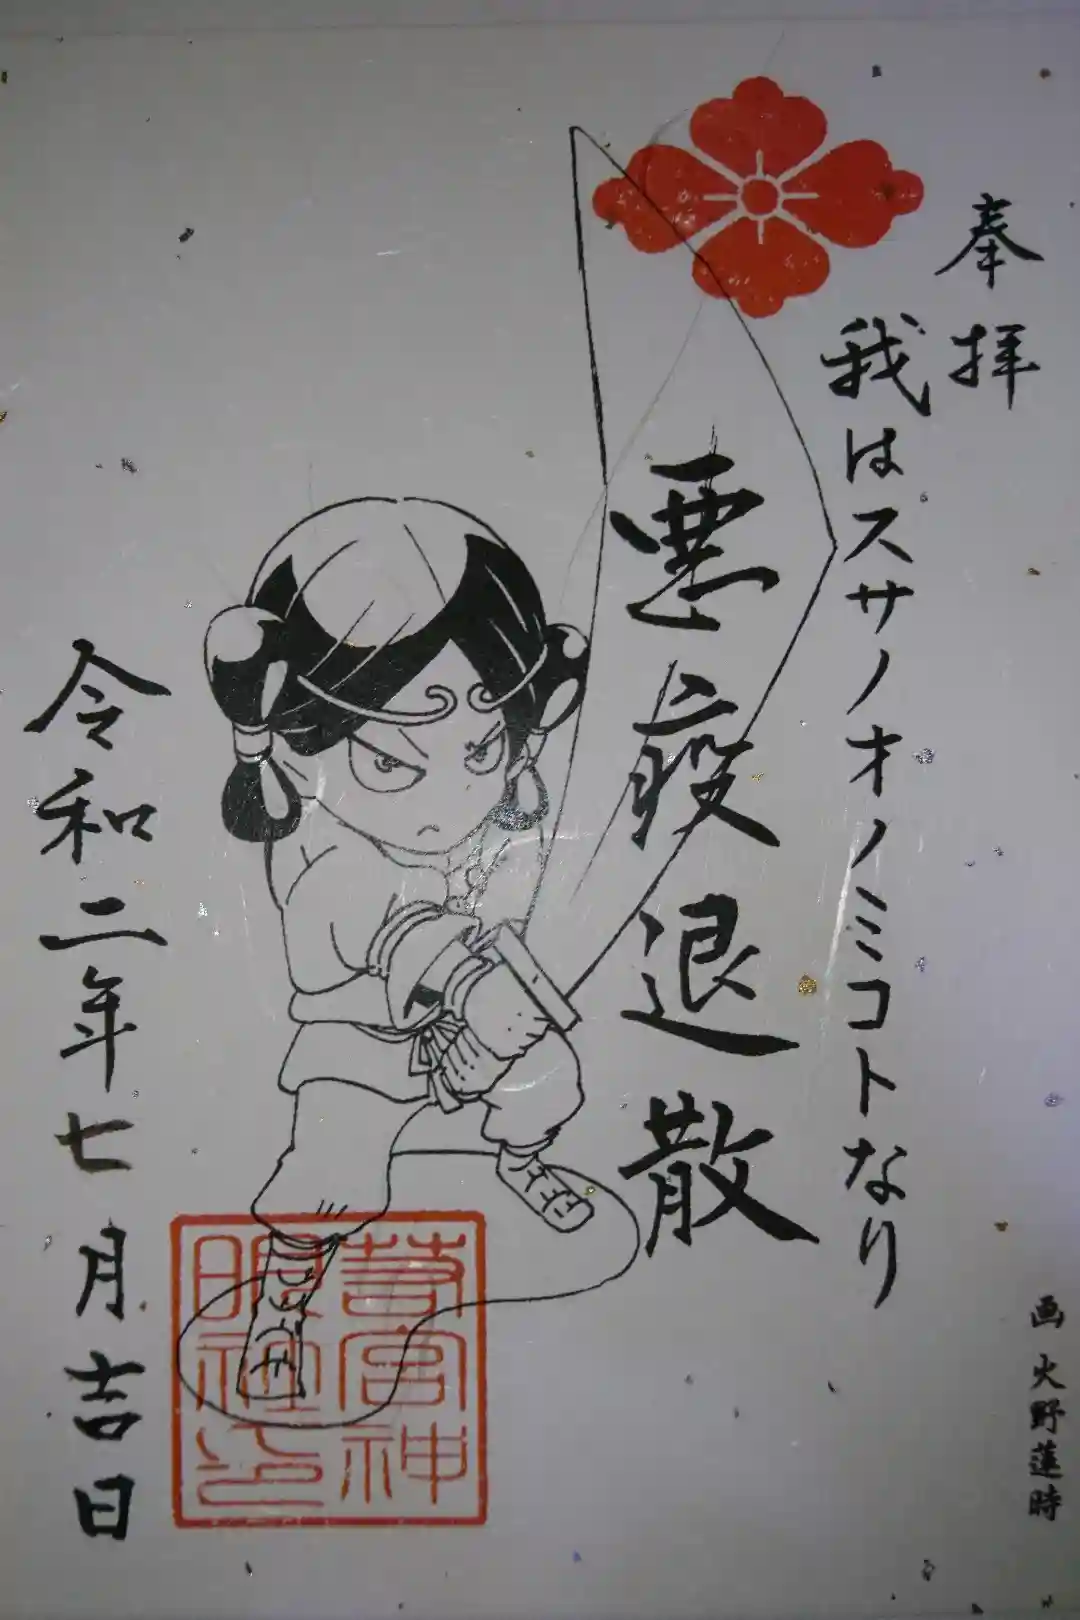 奉拝
我はスサノオノミコトなり
悪疫退散
令和二年七月吉日
画 火野蓮時